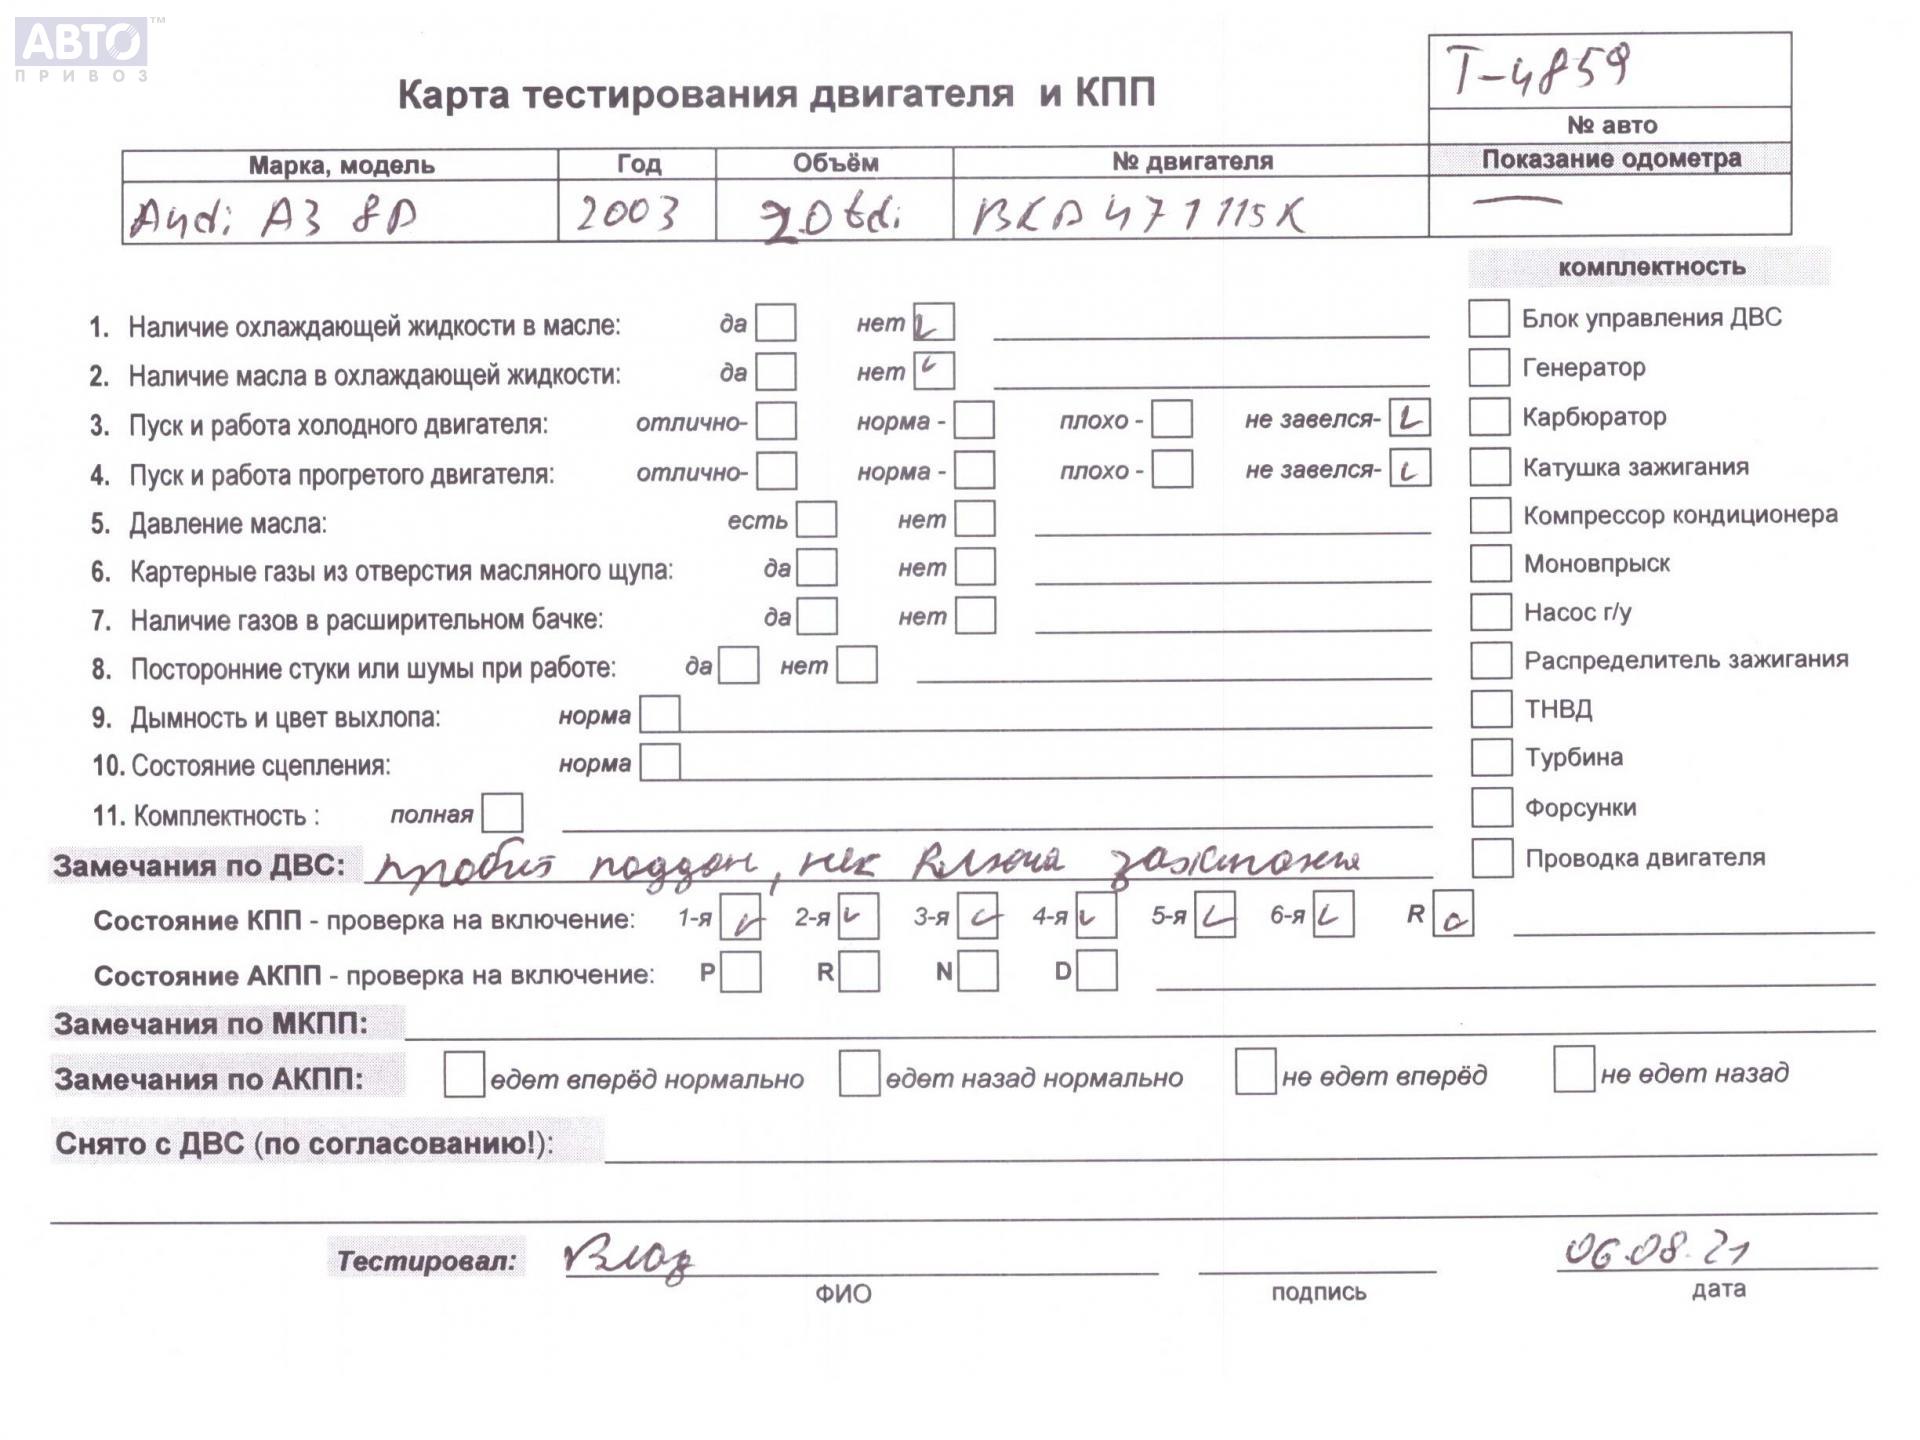 АВТО™
ПРИВОЗ
T-4859
Карта тестирования двигателя и КПП
№ авто
Марка, модель Год Объём № двигателя Показание одометра
Audi A3 8P 2003 2.0 tdi BKD 471115K —
комплектность
1. Наличие охлаждающей жидкости в масле: да нет Блок управления ДВС
2. Наличие масла в охлаждающей жидкости: да нет Генератор
3. Пуск и работа холодного двигателя: отлично- норма - плохо - не завелся- Карбюратор
4. Пуск и работа прогретого двигателя: отлично- норма - плохо - не завелся- Катушка зажигания
5. Давление масла: есть нет Компрессор кондиционера
6. Картерные газы из отверстия масляного щупа: да нет Моновпрыск
7. Наличие газов в расширительном бачке: да нет Насос г/у
8. Посторонние стуки или шумы при работе: да нет Распределитель зажигания
9. Дымность и цвет выхлопа: норма ТНВД
10. Состояние сцепления: норма Турбина
11. Комплектность : полная Форсунки
Замечания по ДВС: пробит поддон, нет ключа зажигания Проводка двигателя
Состояние КПП - проверка на включение: 1-я 2-я 3-я 4-я 5-я 6-я R
Состояние АКПП - проверка на включение: P R N D
Замечания по МКПП:
Замечания по АКПП: едет вперёд нормально едет назад нормально не едет вперёд не едет назад
Снято с ДВС (по согласованию!):
Тестировал: Влад 06.08.21
ФИО подпись дата